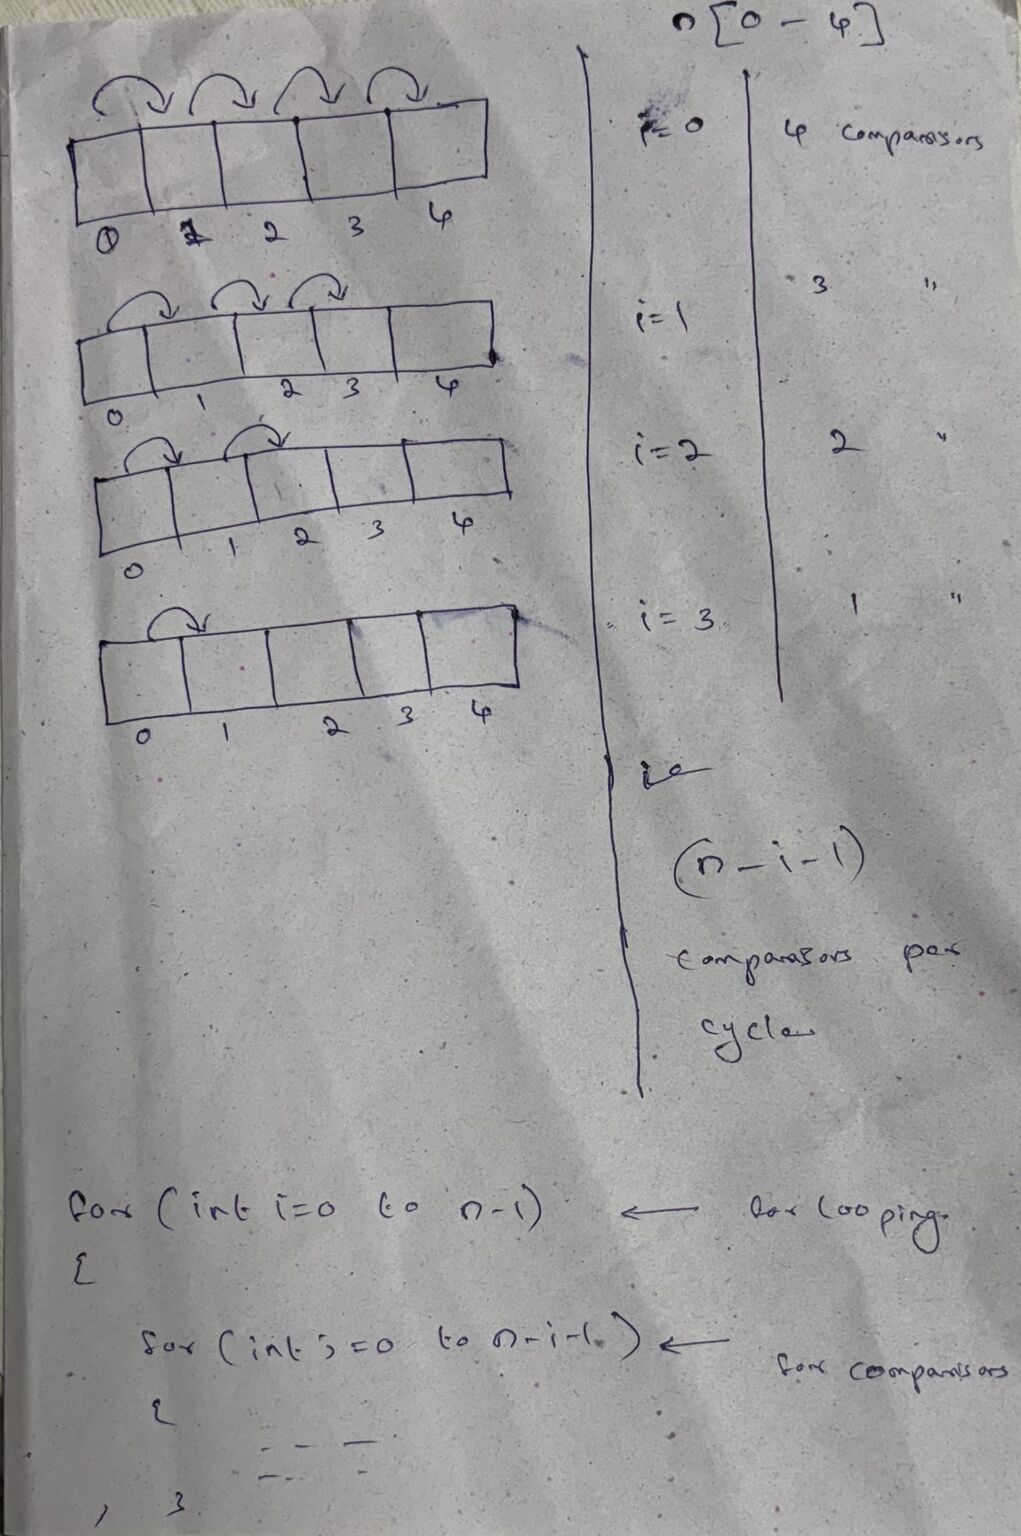 n[0 - 4]
0 1 2 3 4
i=0 4 comparisons
0 1 2 3 4
i=1 3 "
0 1 2 3 4
i=2 2 "
0 1 2 3 4
i=3 1 "
ie
(n-i-1)
comparisons per
cycle
for (int i=0 to n-1) ← for looping.
{
for (int j=0 to n-i-1) ← for comparisons
{
}
}